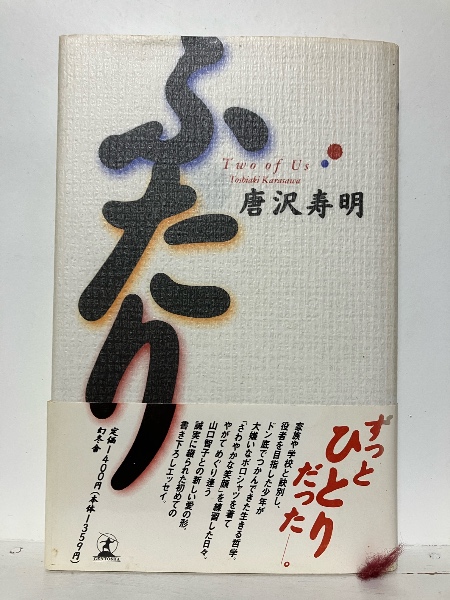 ふたり
Two of Us
Toshiaki Karasawa
唐沢寿明
ずっと
ひとり
だった—。
家族や学校と訣別し、
役者を目指した少年が
ドン底でつかんできた生きる哲学。
大嫌いなポロシャツを着て
「さわやかな笑顔」を練習した日々。
やがてめぐり逢う
山口智子との新しい愛の形。
誠実に綴られた初めての
書き下ろしエッセイ。
定価1400円(本体1359円)
幻冬舎
GENTOSHA